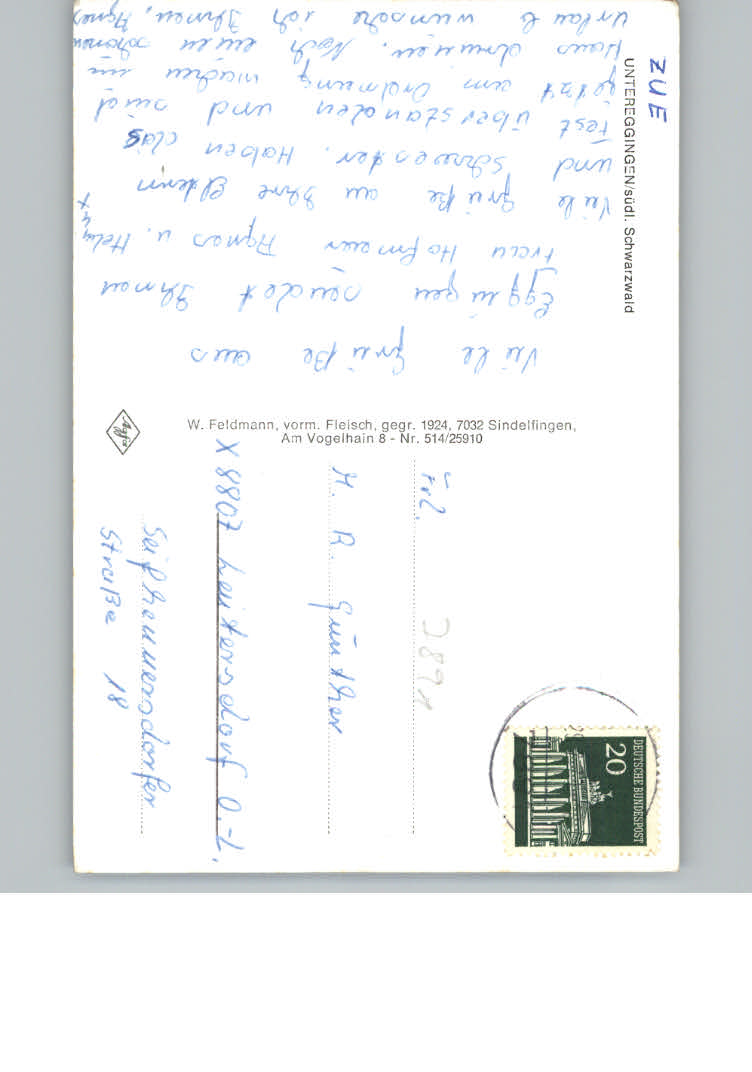 ZUE
UNTEREGGINGEN/südl. Schwarzwald
Viele Grüße aus
Eggingen sendet Ihnen
Frau Hofmann Agnes u. Helm
Viele Grüße an Ihre Eltern
und Schwester. Haben das
Fest überstanden und sind
jetzt am Ordnung machen im
Haus drinnen. Noch einen schönen
Urlaub wünsche ich Ihnen, Agnes
W. Feldmann, vorm. Fleisch, gegr. 1924, 7032 Sindelfingen,
Am Vogelhain 8 - Nr. 514/25910
Agfa
DEUTSCHE BUNDESPOST
20
Frl.
H. R. Günther
X 8807 Leutersdorf O.-L.
Seifhennersdorfer
Straße 18